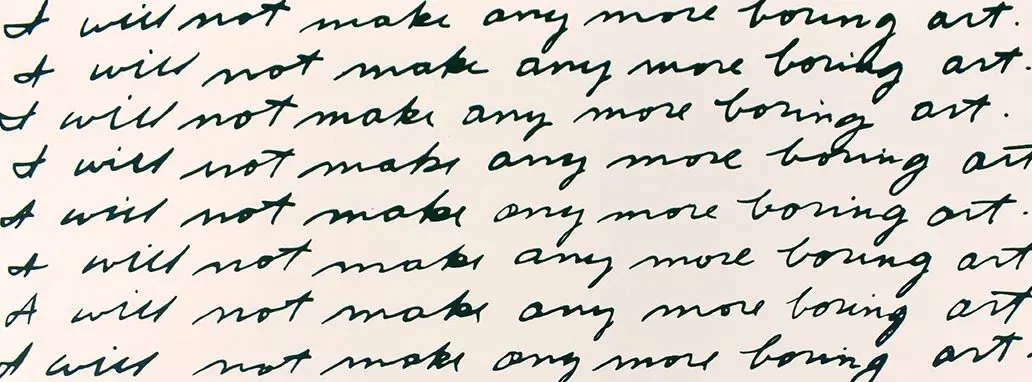 I will not make any more boring art.
I will not make any more boring art.
I will not make any more boring art.
I will not make any more boring art
I will not make any more boring art.
I will not make any more boring art
I will not make any more boring art
I will not make any more boring art.